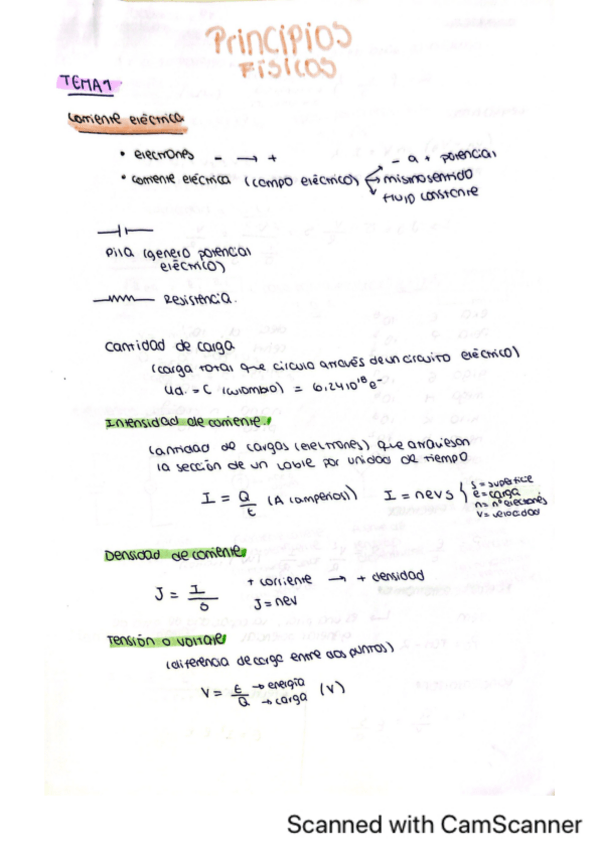 Principios
Físicos
TEMA 1
corriente eléctrica
• electrones - → +
• corriente eléctrica (campo eléctrico) - a + potencial
mismo sentido
fluid constante
Pila (genera potencial
eléctrico)
Resistencia.
cantidad de carga
(carga total que circula através de un circuito eléctrico)
Ud. = C (culombio) = 6,24 10¹⁸ e⁻
Intensidad de corriente.
cantidad de cargas (electrones) que atraviesan
la sección de un cable por unidad de tiempo
I = Q/t (A (amperios)) I = nevs
s = superficie
e = carga
n = nº electrones
v = velocidad
Densidad de corriente
J = I/S + corriente → + densidad
J = nev
Tensión o voltaje
(diferencia de carga entre dos puntos)
V = E/Q → energía → carga (V)
Scanned with CamScanner